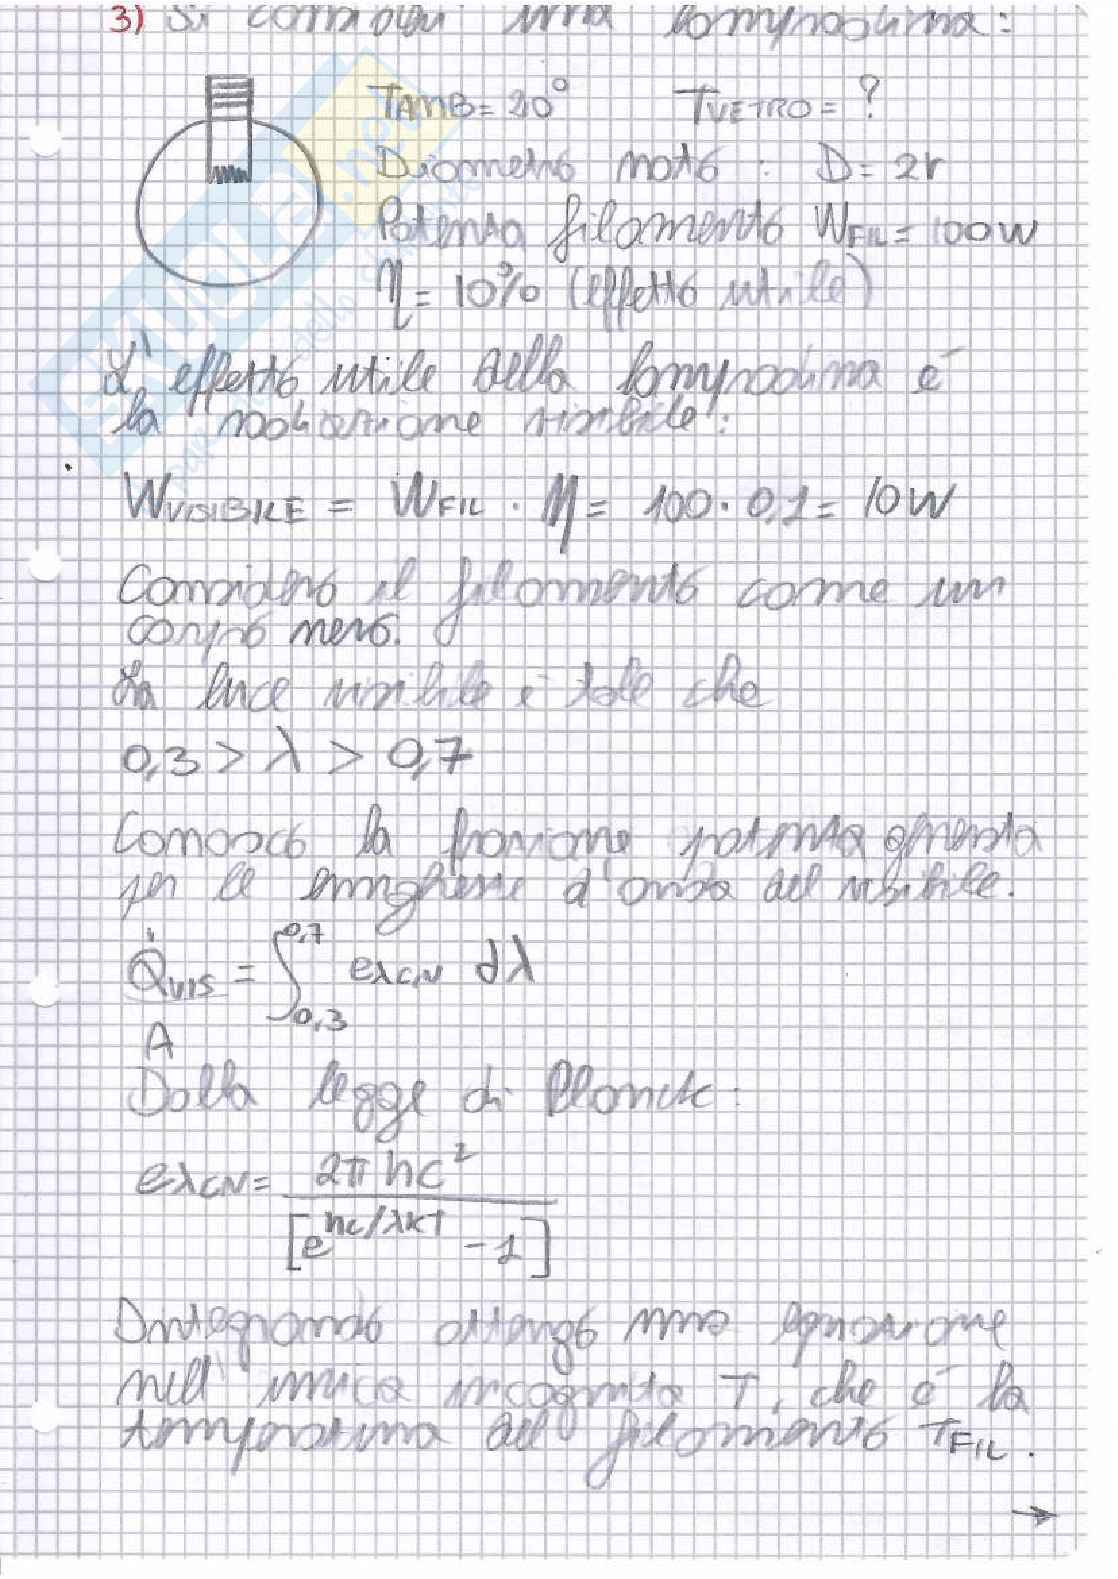 3) Si consideri una lampadina:
TAMB = 20° TVETRO = ?
Diametro noto : D = 2r
Potenza filamento WFIL = 100W
η = 10% (effetto utile)
L'effetto utile della lampadina è
la radiazione visibile:
WVISIBILE = WFIL · η = 100 · 0,1 = 10W
Considero il filamento come un
corpo nero.
La luce visibile è tale che
0,3 > λ > 0,7
Conosco la frazione potenza generata
per le lunghezze d'onda del visibile.
Q̇VIS/A = ∫0,3 0,7 eλCN dλ
Dalla legge di Planck:
eλCN = 2πhc² / [e^hc/λKT - 1]
Integrando ottengo una equazione
nell'unica incognita T, che è la
temperatura del filamento TFIL.
→